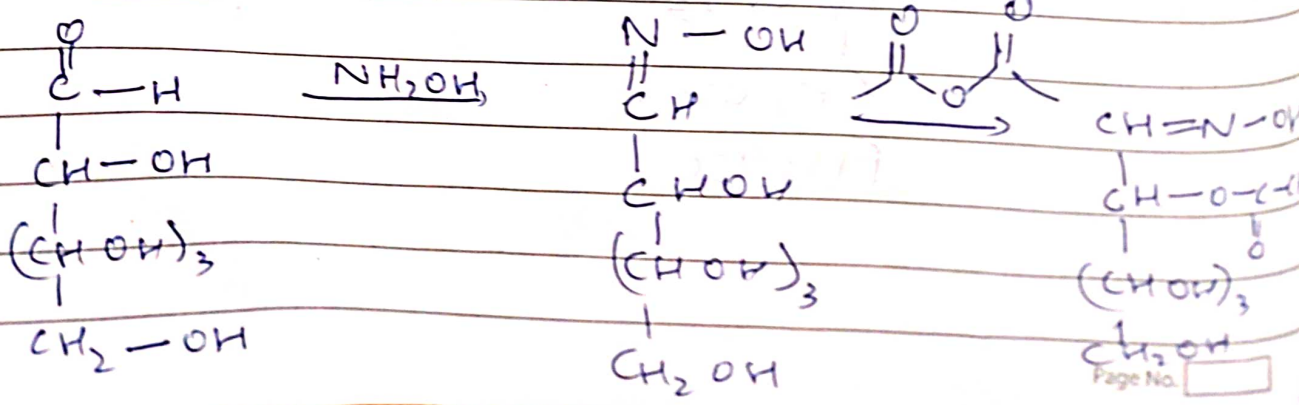 O
C—H
CH—OH
(CHOH)3
CH2—OH
NH2OH
N—OH
CH
CHOH
(CHOH)3
CH2OH
O O
O
CH=N-OH
CH-O-C-
O
(CHOH)3
CH2OH
Page No.